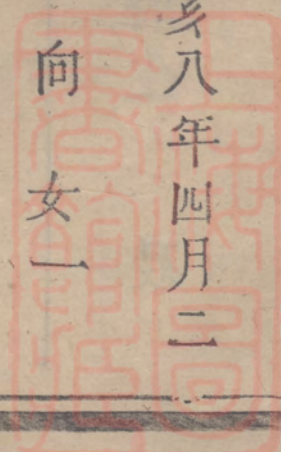 亥八年四月二
向　女一